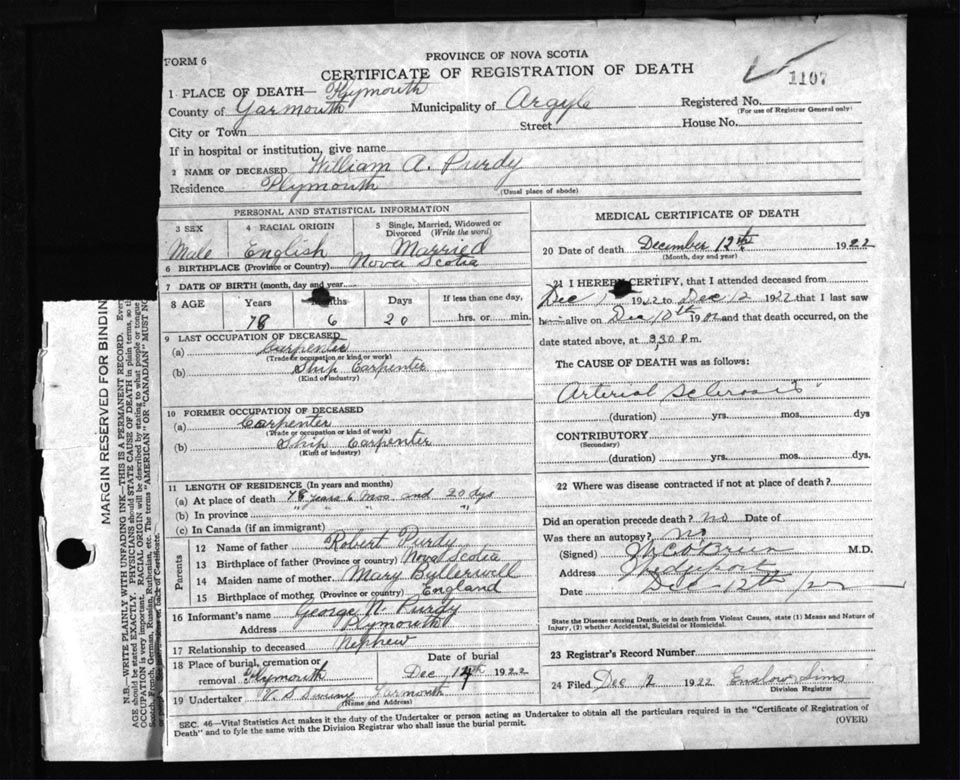 FORM 6
PROVINCE OF NOVA SCOTIA
CERTIFICATE OF REGISTRATION OF DEATH
1107
1 PLACE OF DEATH— Plymouth
County of Yarmouth Municipality of Argyle Registered No.
(For use of Registrar General only)
City or Town Street House No.
If in hospital or institution, give name
2 NAME OF DECEASED William A. Purdy
Residence Plymouth
(Usual place of abode)
PERSONAL AND STATISTICAL INFORMATION
3 SEX 4 RACIAL ORIGIN 5 Single, Married, Widowed or Divorced (Write the word)
Male English Married
6 BIRTHPLACE (Province or Country) Nova Scotia
7 DATE OF BIRTH (month, day and year)
8 AGE Years Months Days If less than one day,
78 6 20 hrs. or min.
9 LAST OCCUPATION OF DECEASED
(a) Carpenter
(Trade or occupation or kind or work)
(b) Ship Carpenter
(Kind of industry)
10 FORMER OCCUPATION OF DECEASED
(a) Carpenter
(Trade or occupation or kind of work)
(b) Ship Carpenter
(Kind of industry)
11 LENGTH OF RESIDENCE (In years and months)
(a) At place of death 78 years 6 mos and 20 dys
(b) In province " " " "
(c) In Canada (if an immigrant)
Parents
12 Name of father Robert Purdy
13 Birthplace of father (Province or Country) Nova Scotia
14 Maiden name of mother Mary
15 Birthplace of mother (Province or Country) England
16 Informant's name George N. Purdy
Address Plymouth
17 Relationship to deceased Nephew
18 Place of burial, cremation or removal Plymouth
Date of burial
Dec 14th 1922
19 Undertaker V. S. Sweeny Yarmouth
(Name and Address)
MEDICAL CERTIFICATE OF DEATH
20 Date of death December 12th 1922
(Month, day and year)
21 I HEREBY CERTIFY, that I attended deceased from
Dec 1922 to Dec 12 1922 that I last saw
h alive on Dec 1922 and that death occurred, on
date stated above, at 9.30 P.m.
The CAUSE OF DEATH was as follows:
Arterial Sclerosis
(duration) yrs. mos. dys
CONTRIBUTORY
(Secondary)
(duration) yrs. mos. dys.
22 Where was disease contracted if not at place of death?
Did an operation precede death? no Date of
Was there an autopsy? no
(Signed) M.D.
Address
Date Dec 12th /22
State the Disease causing Death, or in death from Violent Causes, state (1) Means and Nature of
Injury, (2) whether Accidental, Suicidal or Homicidal.
23 Registrar's Record Number
24 Filed Dec 2 1922 Enslow Sims
Division Registrar
SEC. 46—Vital Statistics Act makes it the duty of the Undertaker or person acting as Undertaker to obtain all the particulars required in the "Certificate of Registration of
Death" and to fyle the same with the Division Registrar who shall issue the burial permit.
(OVER)
MARGIN RESERVED FOR BINDIN
N.B.—WRITE PLAINLY WITH UNFADING INK—THIS IS A PERMANENT RECORD. Ever
AGE should be stated EXACTLY. PHYSICIANS should STATE CAUSE OF DEATH in plain terms, so th
OCCUPATION is very important. RACIAL ORIGIN will be described by stating to what people or tongue
Scotch, French, German, Russian, Ruthenian, etc. The terms "AMERICAN" OR "CANADIAN" MUST NO